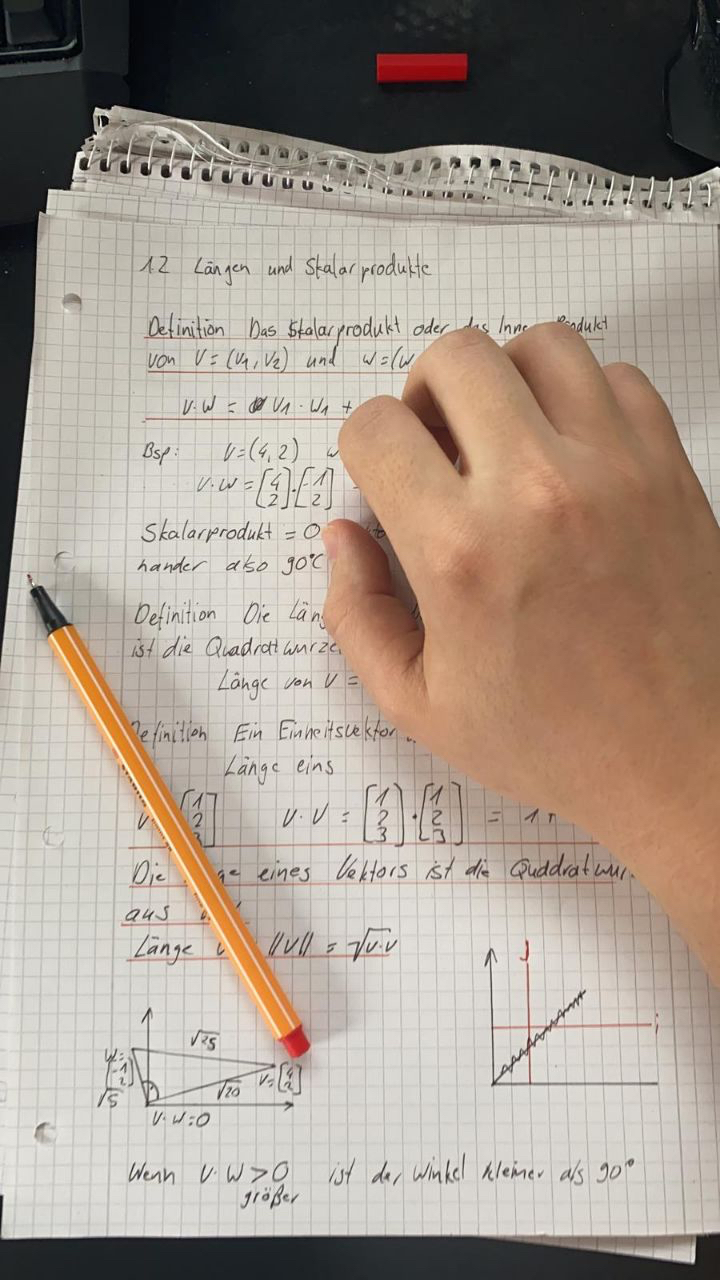 1.2 Längen und Skalarprodukte
Definition Das Skalarprodukt oder das
von V = (V1, V2) und w = (w
V·W = V1 · W1 +
Bsp: V = (4, 2) w
V·W = [4 2] · [-1 2]
Skalarprodukt = 0
nander also 90°C
Definition Die Län
ist die Quadratwurze
Länge von V =
Definition Ein Einheitsvektor
Länge eins
V [1 2 3] V·V = [1 2 3] · [1 2 3] = 1
Die eines Vektors ist die Quddratwur
aus
Länge ||V|| = √V·V
j
i
√25
W = [-1 2]
√5
√20
V = [4 2]
V·W=0
Wenn V·W > 0 ist der Winkel kleiner als 90°
größer